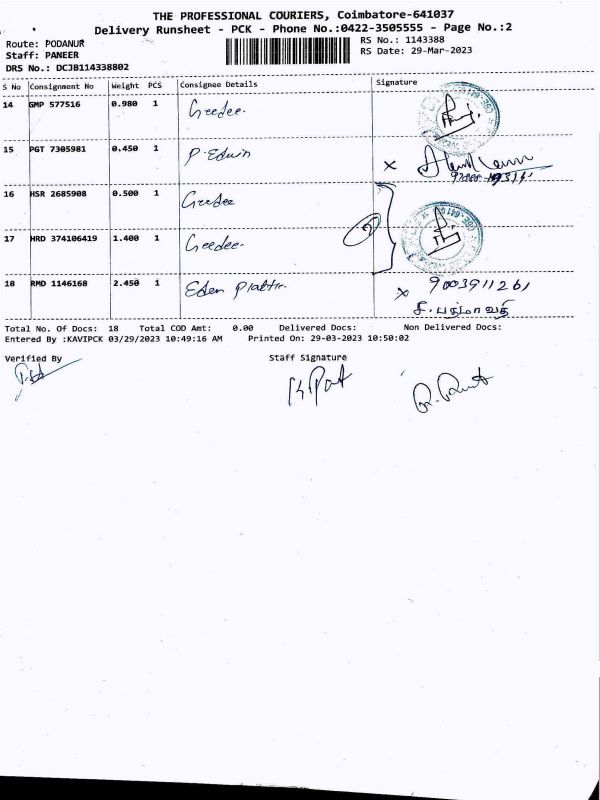 THE PROFESSIONAL COURIERS, Coimbatore-641037
Delivery Runsheet - PCK - Phone No.:0422-3505555 - Page No.:2
Route: PODANUR
Staff: PANEER
DRS No.: DCJB114338802
RS No.: 1143388
RS Date: 29-Mar-2023
S No Consignment No Weight PCS Consignee Details Signature
14 GMP 577516 0.980 1 Geedee.
15 PGT 7305981 0.450 1 P. Edwin x
16 HSR 2685908 0.500 1 Geedee
17 HRD 374106419 1.400 1 Geedee. 2
18 RMD 1146168 2.450 1 Eden x 9003911261
சி. பத்மாவதி
Total No. Of Docs: 18 Total COD Amt: 0.00 Delivered Docs: Non Delivered Docs:
Entered By :KAVIPCK 03/29/2023 10:49:16 AM Printed On: 29-03-2023 10:50:02
Verified By Staff Signature